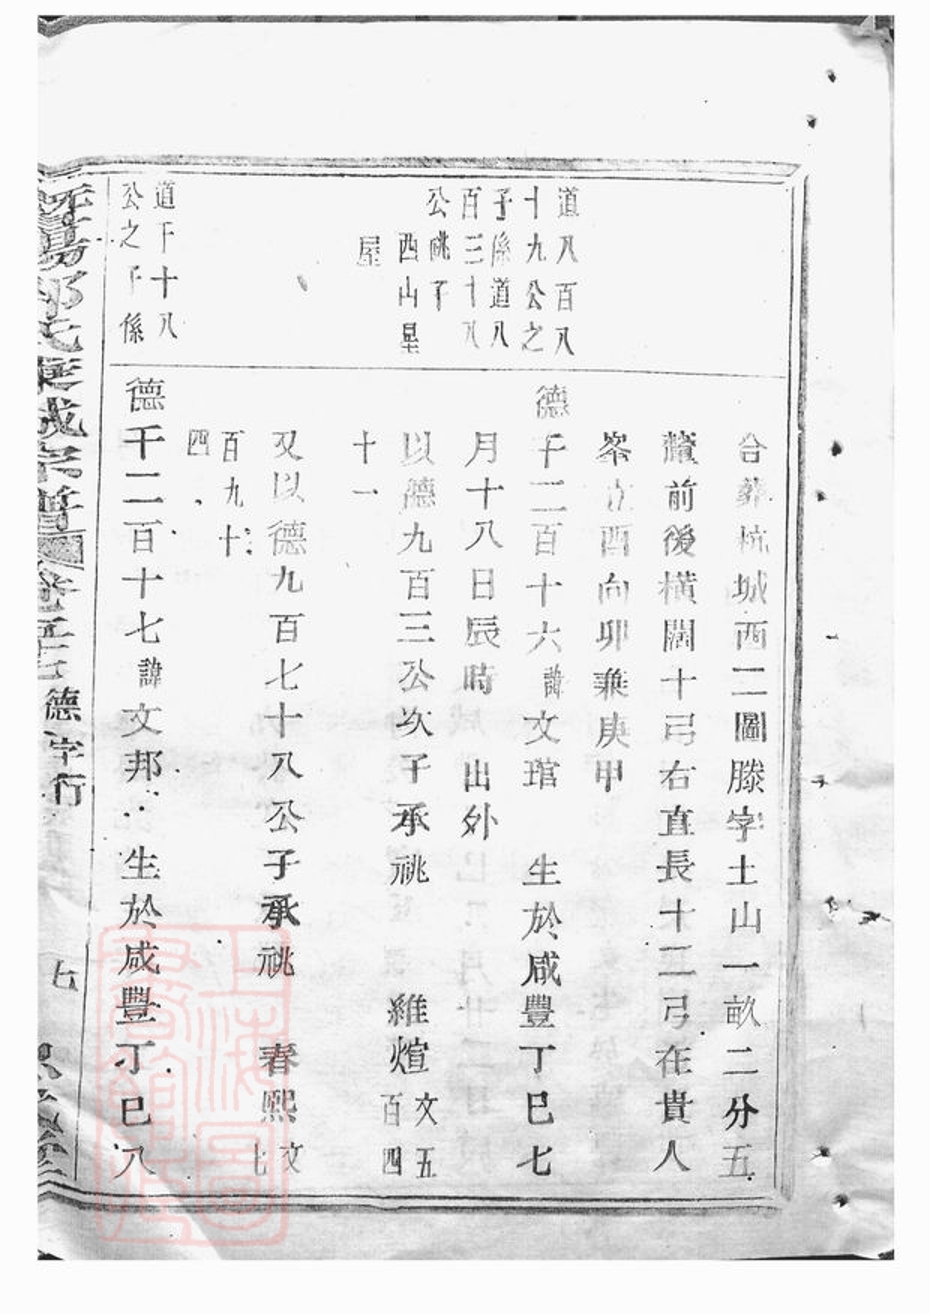 道八百八
十九公之
子係道八
百三十八
公祧子
西山星
屋
道千十八
公之子係
合葬杭城西二圖滕字土山一畝二分五
釐前後橫闊十弓右直長十二弓在貴人
峯立酉向卯兼庚甲
德千二百十六諱文琯 生於咸豐丁巳七
月十八日辰時 出外
以德九百三公次子承祧 維煊文五
百四
十一
又以德九百七十八公子承祧 春熙文
七
百九十
四
德千二百十七諱文邦 生於咸豐丁巳八
暨陽 氏 宗譜 卷 德字行 七
上海圖書館